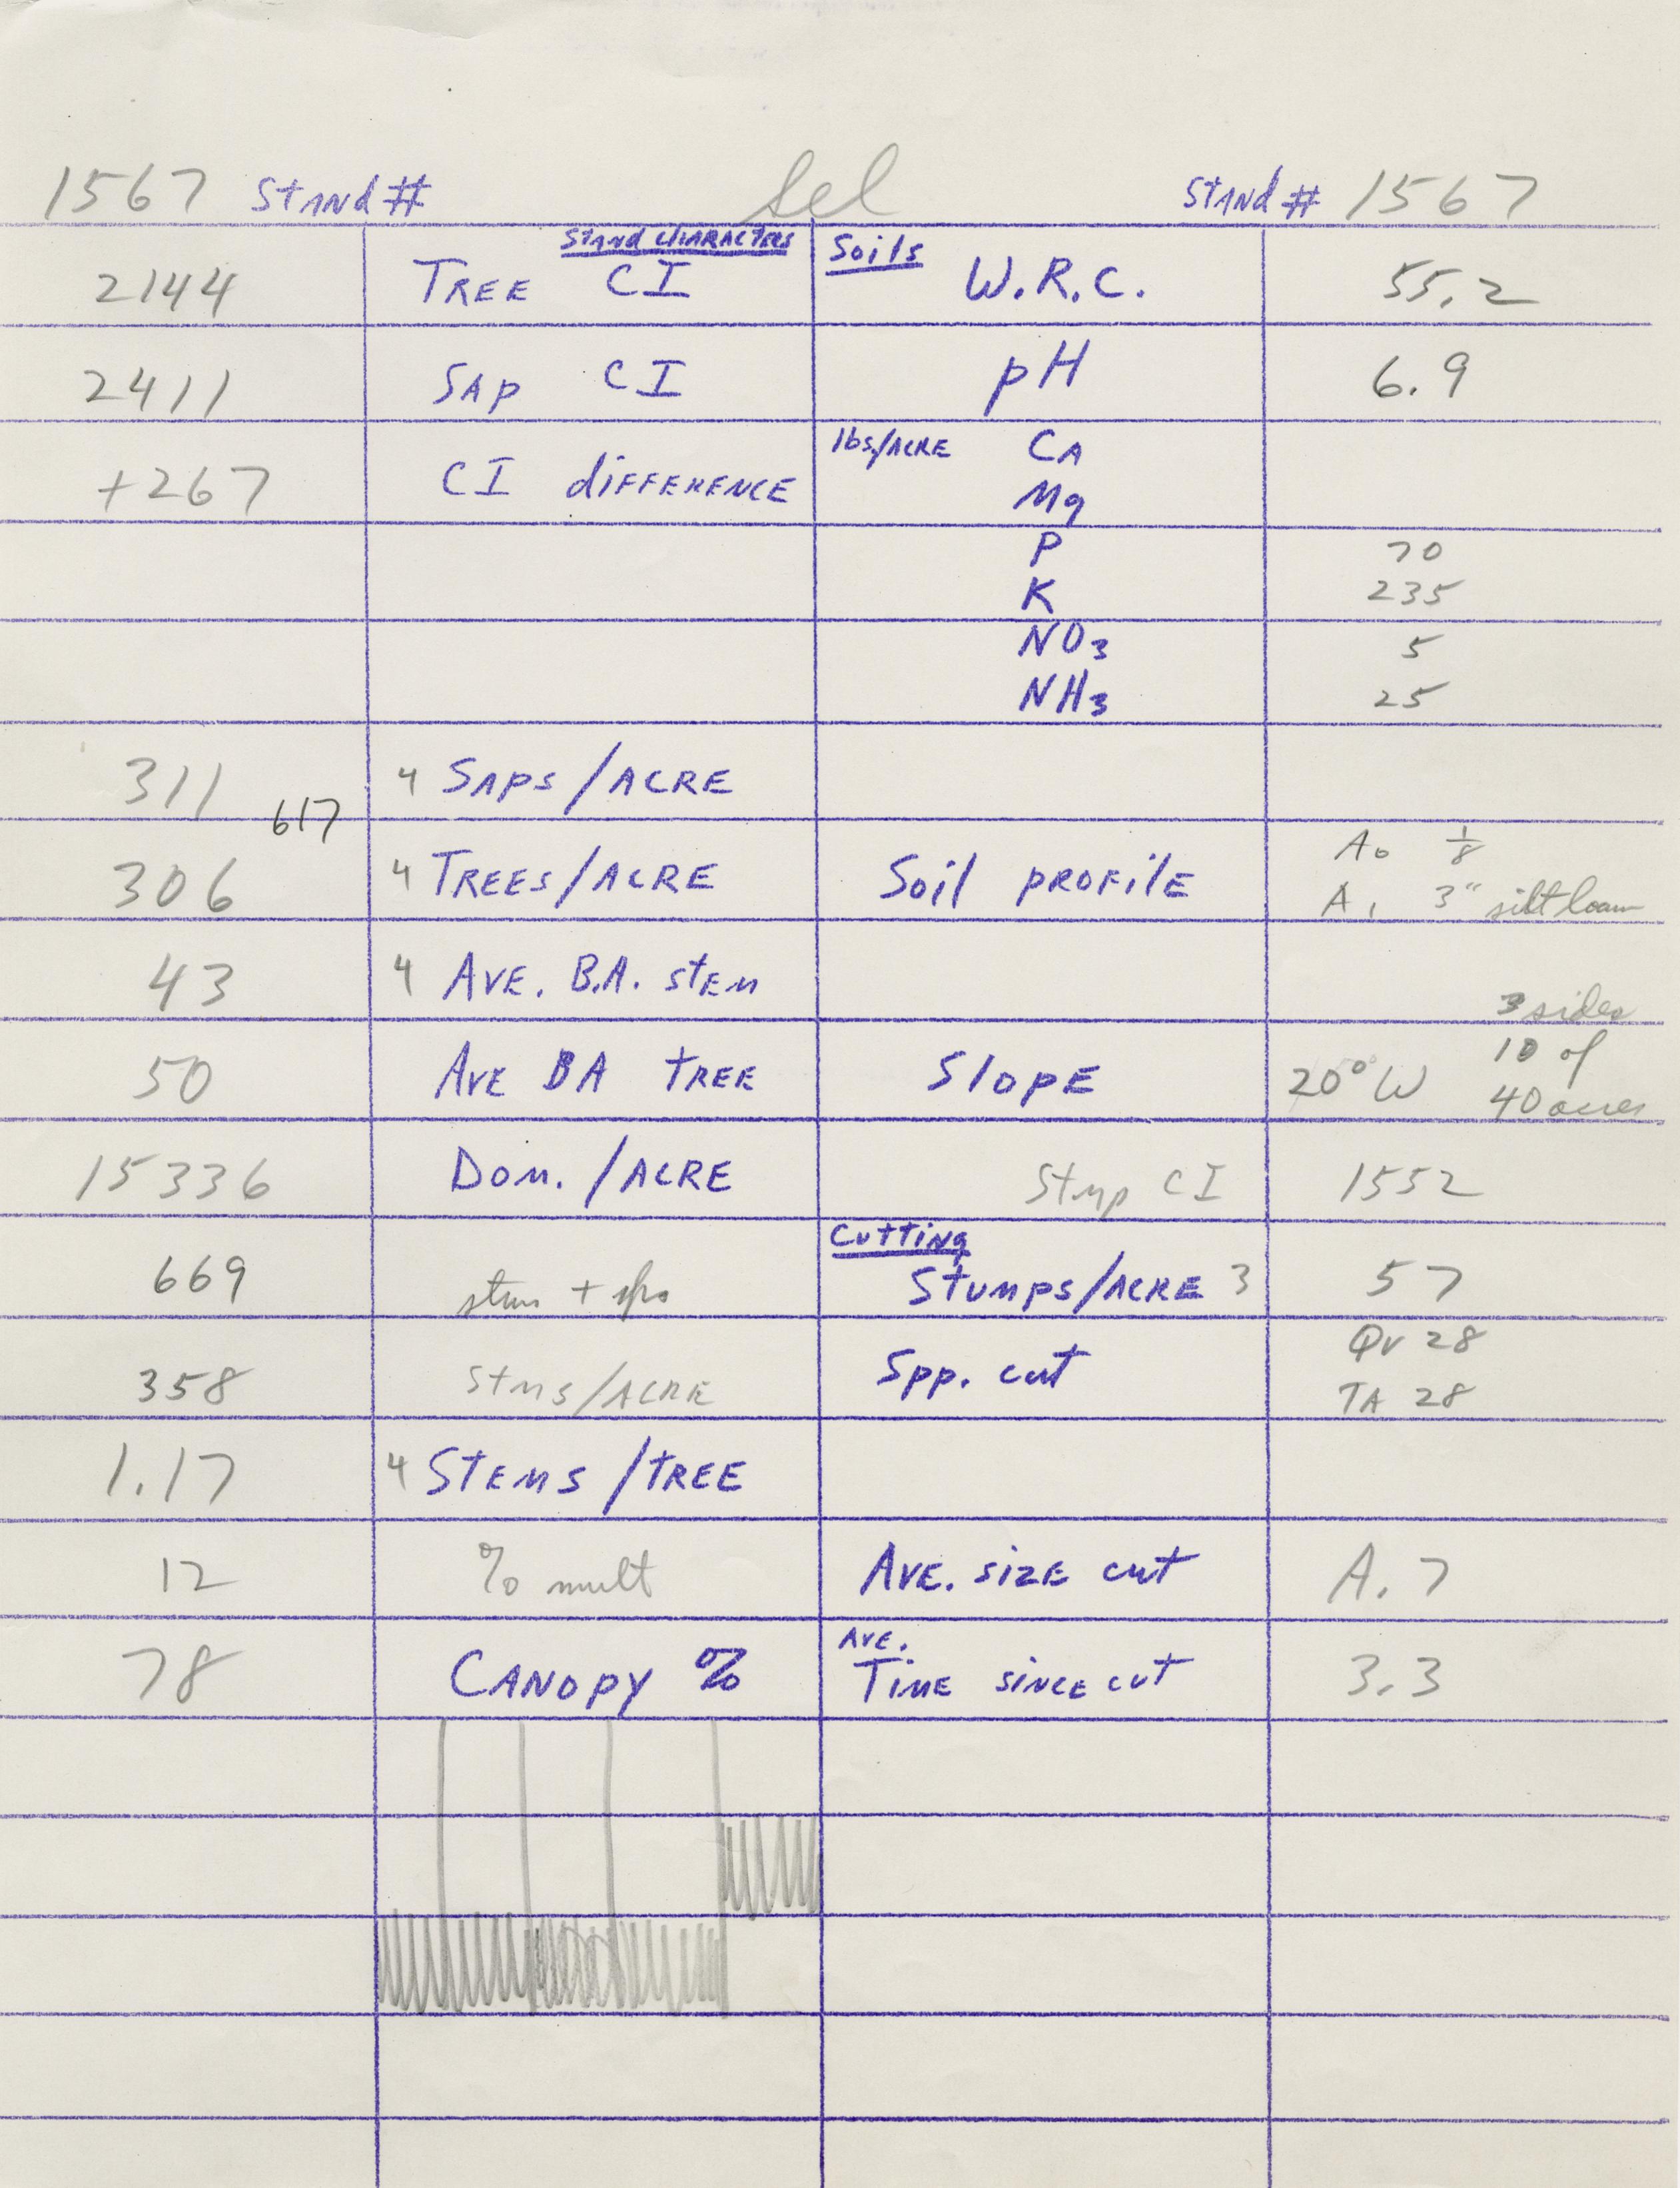 1567 Stand # Sel Stand # 1567
Stand Characters Soils
2144 Tree CI W.R.C. 55.2
2411 Sap CI pH 6.9
lbs./Acre Ca
+267 CI difference Mg
P 70
K 235
NO3 5
NH3 25
311 4 Saps/Acre
617
306 4 Trees/Acre Soil profile A0 1/8
A1 3" silt loam
43 4 Ave. B.A. stem
3 sides
50 Ave BA tree Slope 20° W 10 of
40 acres
15336 Dom./Acre Stmp CI 1552
Cutting
669 stms + sps Stumps/Acre 3 57
Spp. cut QV 28
358 Stms/Acre TA 28
1.17 4 Stems/tree
12 % mult Ave. size cut A.7
78 Canopy % Ave. Time since cut 3.3